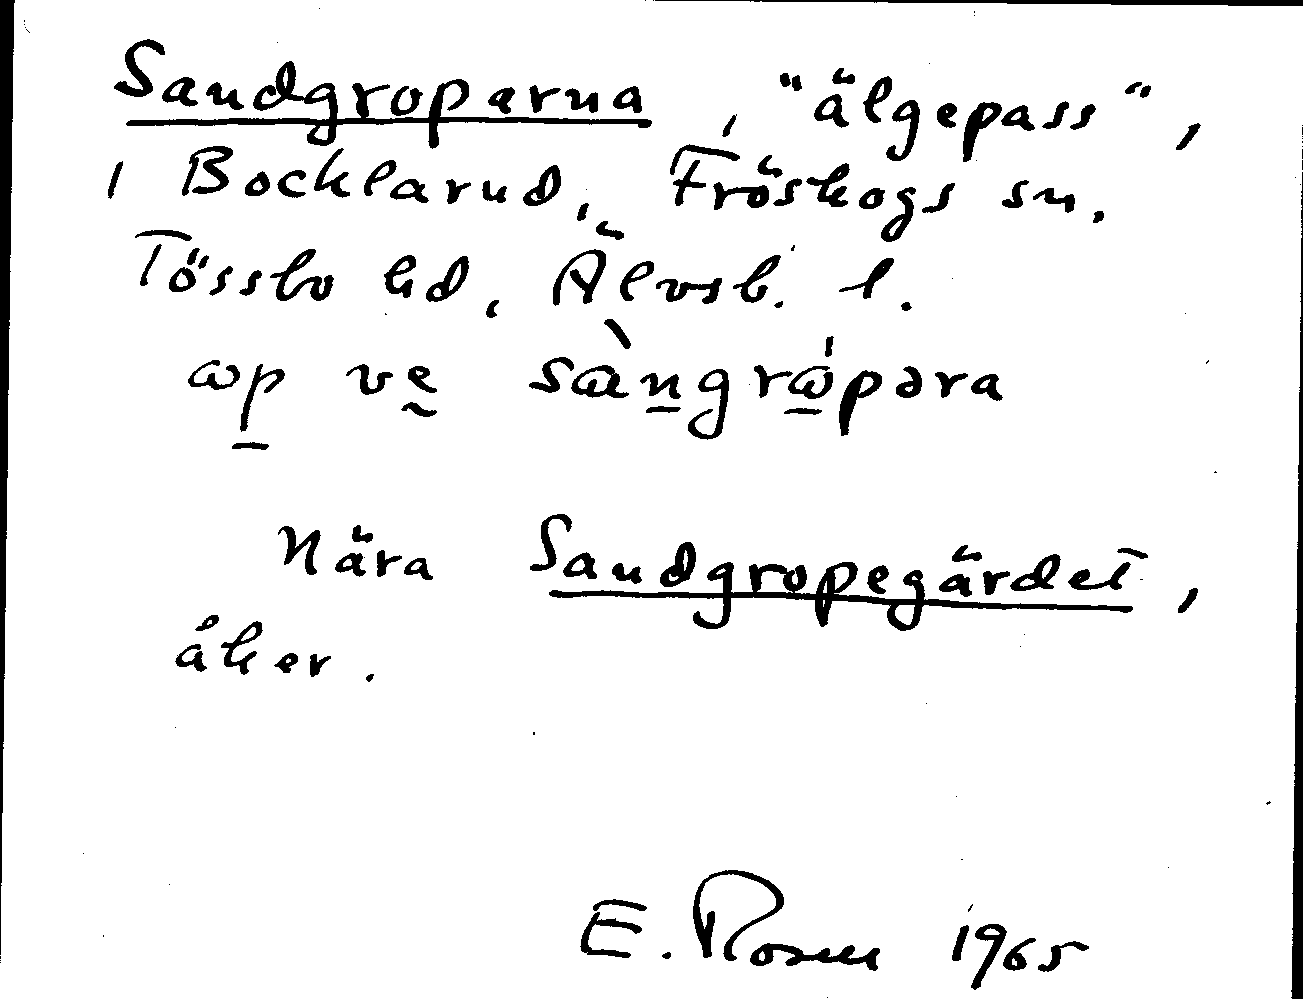 Sandgroparna, "älgepass",
i Bocklarud, Fröskogs sn.
Tössbo hd, Älvsb. l.
ωp ve sàngrώpəra
Nära Sandgropegärdet,
åker.
E. Rosen 1965